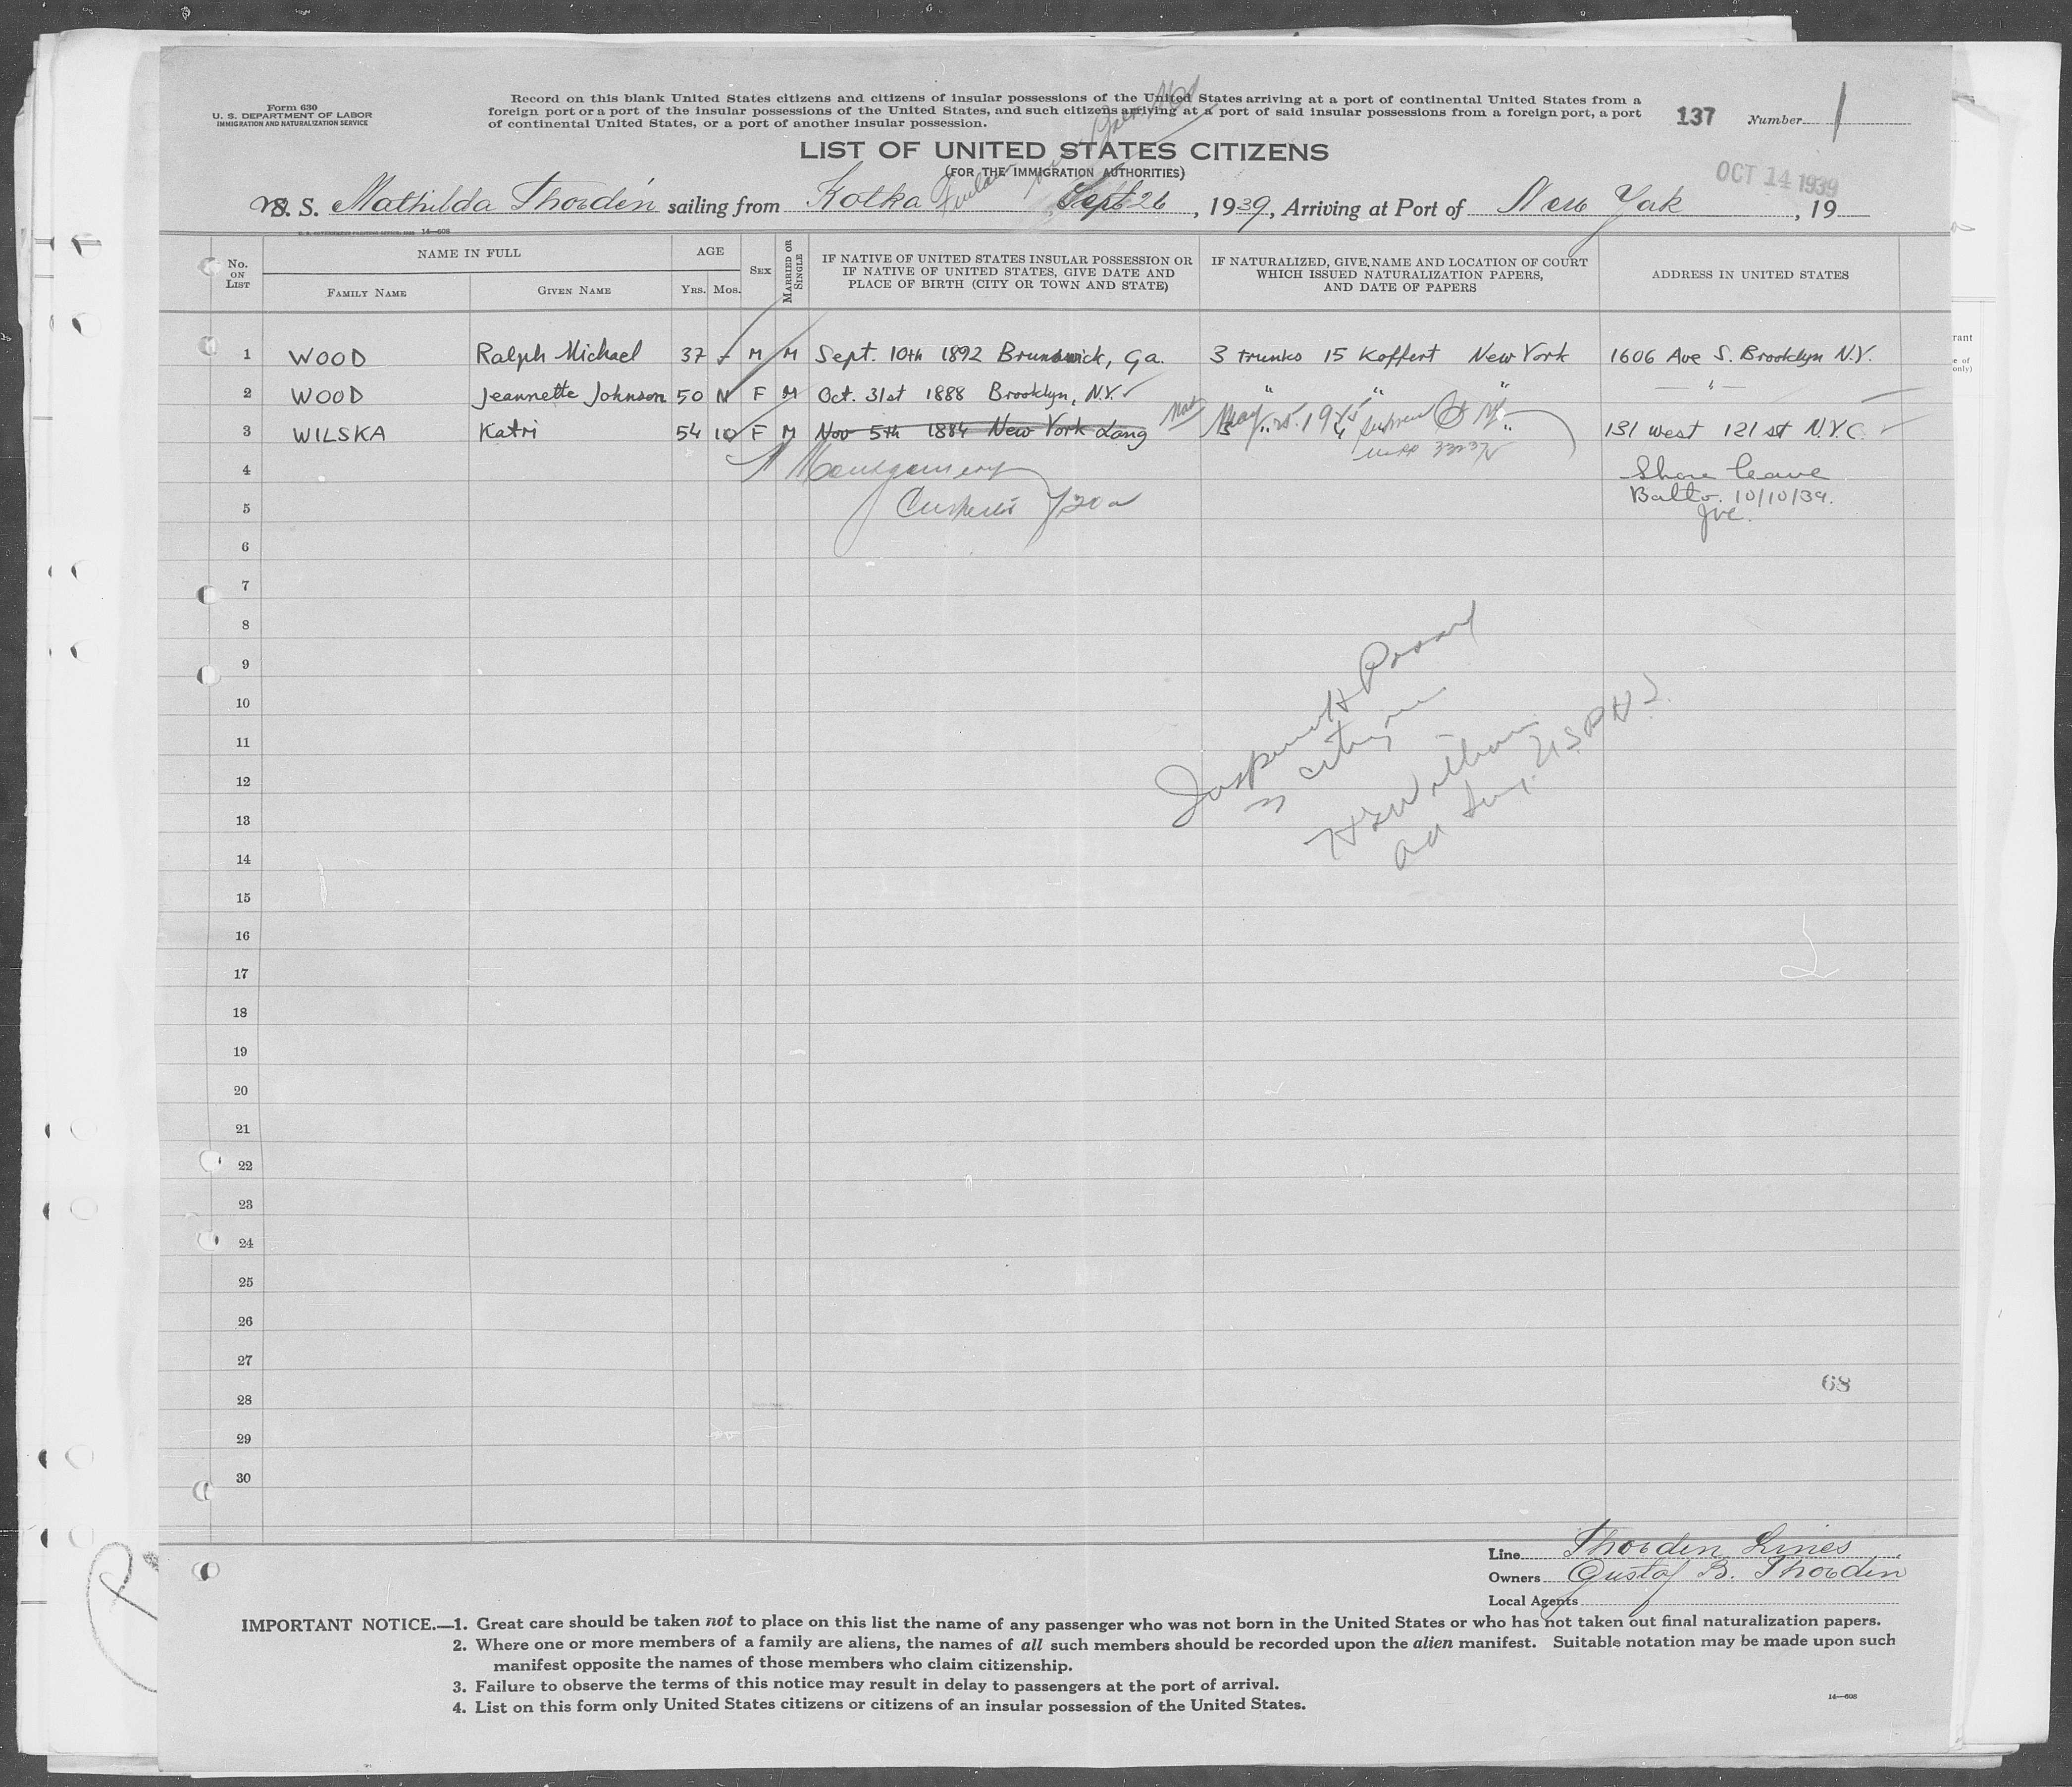 Form 630
U. S. DEPARTMENT OF LABOR
IMMIGRATION AND NATURALIZATION SERVICE
Record on this blank United States citizens and citizens of insular possessions of the United States arriving at a port of continental United States from a
foreign port or a port of the insular possessions of the United States, and such citizens arriving at a port of said insular possessions from a foreign port, a port
of continental United States, or a port of another insular possession.
137 Number 1
LIST OF UNITED STATES CITIZENS
(FOR THE IMMIGRATION AUTHORITIES)
OCT 14 1939
S. S. Mathilda Thordén sailing from Kotka Sept 26, 1939, Arriving at Port of New York, 19
14—608
No. ON LIST
NAME IN FULL
FAMILY NAME
GIVEN NAME
AGE
YRS. MOS.
SEX
MARRIED OR SINGLE
IF NATIVE OF UNITED STATES INSULAR POSSESSION OR
IF NATIVE OF UNITED STATES, GIVE DATE AND
PLACE OF BIRTH (CITY OR TOWN AND STATE)
IF NATURALIZED, GIVE NAME AND LOCATION OF COURT
WHICH ISSUED NATURALIZATION PAPERS,
AND DATE OF PAPERS
ADDRESS IN UNITED STATES
1 WOOD Ralph Michael 37 - M M Sept. 10th 1892 Brunswick, Ga. 3 trunks 15 Koffert New York 1606 Ave S. Brooklyn N.Y.
2 WOOD Jeannette Johnson 50 F M Oct. 31st 1888 Brooklyn, N.Y. " " " — " —
3 WILSKA Katri 54 10 F M Nov 5th 1884 New York Lang May 131 West 121 st N.Y.C.
4 Shore leave
5 Balto. 10/10/39.
6
7
8
9
10
11
12
13
14
15
16
17
18
19
20
21
22
23
24
25
26
27
28
29
30
68
Line Thorden Lines
Owners Gustaf B. Thordén
Local Agents
IMPORTANT NOTICE.—1. Great care should be taken not to place on this list the name of any passenger who was not born in the United States or who has not taken out final naturalization papers.
2. Where one or more members of a family are aliens, the names of all such members should be recorded upon the alien manifest. Suitable notation may be made upon such
manifest opposite the names of those members who claim citizenship.
3. Failure to observe the terms of this notice may result in delay to passengers at the port of arrival.
4. List on this form only United States citizens or citizens of an insular possession of the United States.
14—608